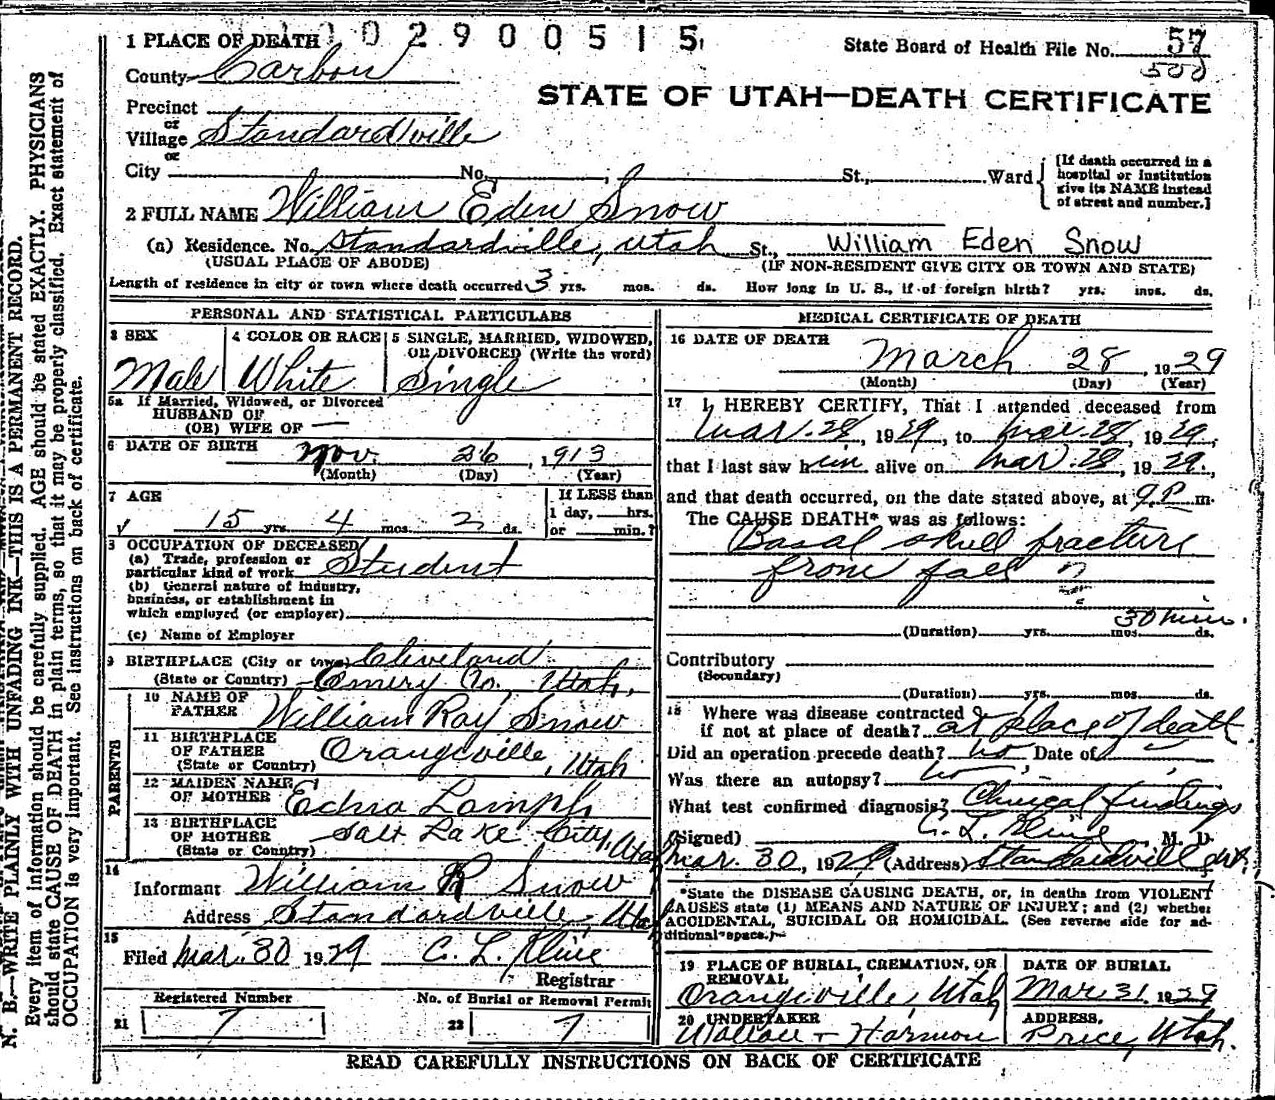 1 PLACE OF DEATH 1 0 0 2 9 0 0 5 1 5
State Board of Health File No. 57
500
County Carbon
STATE OF UTAH—DEATH CERTIFICATE
Precinct
or
Village Standardville
or
City No. , St., Ward
[If death occurred in a
hospital or institution
give its NAME instead
of street and number.]
2 FULL NAME William Eden Snow
(a) Residence. No. Standardville, Utah St., William Eden Snow
(USUAL PLACE OF ABODE) (IF NON-RESIDENT GIVE CITY OR TOWN AND STATE)
Length of residence in city or town where death occurred 3 yrs. mos. ds. How long in U. S., if of foreign birth? yrs. mos. ds.
PERSONAL AND STATISTICAL PARTICULARS
3 SEX
Male
4 COLOR OR RACE
White
5 SINGLE, MARRIED, WIDOWED,
OR DIVORCED (Write the word)
Single
5a If Married, Widowed, or Divorced
HUSBAND OF
(OR) WIFE OF —
6 DATE OF BIRTH Nov 26, 1913
(Month) (Day) (Year)
7 AGE
15 yrs. 4 mos. 2 ds.
If LESS than
1 day, hrs.
or min.?
8 OCCUPATION OF DECEASED
(a) Trade, profession or
particular kind of work Student
(b) General nature of industry,
business, or establishment in
which employed (or employer)
(c) Name of Employer
9 BIRTHPLACE (City or town) Cleveland
(State or Country) Emery Co., Utah.
PARENTS
10 NAME OF
FATHER William Ray Snow
11 BIRTHPLACE
OF FATHER
(State or Country) Orangeville, Utah
12 MAIDEN NAME
OF MOTHER Edna Lamph
13 BIRTHPLACE
OF MOTHER
(State or Country) Salt Lake City, Utah
14
Informant William R Snow
Address Standardville, Utah
15
Filed Mar. 30 1929 C. L. Kline
Registrar
Registered Number
21 7
No. of Burial or Removal Permit
22 7
MEDICAL CERTIFICATE OF DEATH
16 DATE OF DEATH
March 28, 1929
(Month) (Day) (Year)
17 I HEREBY CERTIFY, That I attended deceased from
Mar. 28, 1929, to Mar. 28, 1929,
that I last saw him alive on Mar. 28, 1929,
and that death occurred, on the date stated above, at 9 P m.
The CAUSE DEATH* was as follows:
Basal skull fracture
from fall ?
30 mins.
(Duration) yrs. mos. ds.
Contributory
(Secondary)
(Duration) yrs. mos. ds.
18 Where was disease contracted
if not at place of death? at place of death
Did an operation precede death? no Date of
Was there an autopsy? no
What test confirmed diagnosis? Clinical findings
(Signed) C. L. Kline M. D.
Mar. 30, 1929 (Address) Standardville Ut.
*State the DISEASE CAUSING DEATH, or, in deaths from VIOLENT
CAUSES state (1) MEANS AND NATURE OF INJURY; and (2) whether
ACCIDENTAL, SUICIDAL OR HOMICIDAL. (See reverse side for ad-
ditional space.)
19 PLACE OF BURIAL, CREMATION, OR
REMOVAL
Orangeville, Utah
DATE OF BURIAL
Mar 31 1929
20 UNDERTAKER
Wallace + Harmon
ADDRESS
Price, Utah.
READ CAREFULLY INSTRUCTIONS ON BACK OF CERTIFICATE
N. B.—WRITE PLAINLY WITH UNFADING INK—THIS IS A PERMANENT RECORD.
Every item of information should be carefully supplied. AGE should be stated EXACTLY. PHYSICIANS
should state CAUSE OF DEATH in plain terms, so that it may be properly classified. Exact statement of
OCCUPATION is very important. See instructions on back of certificate.